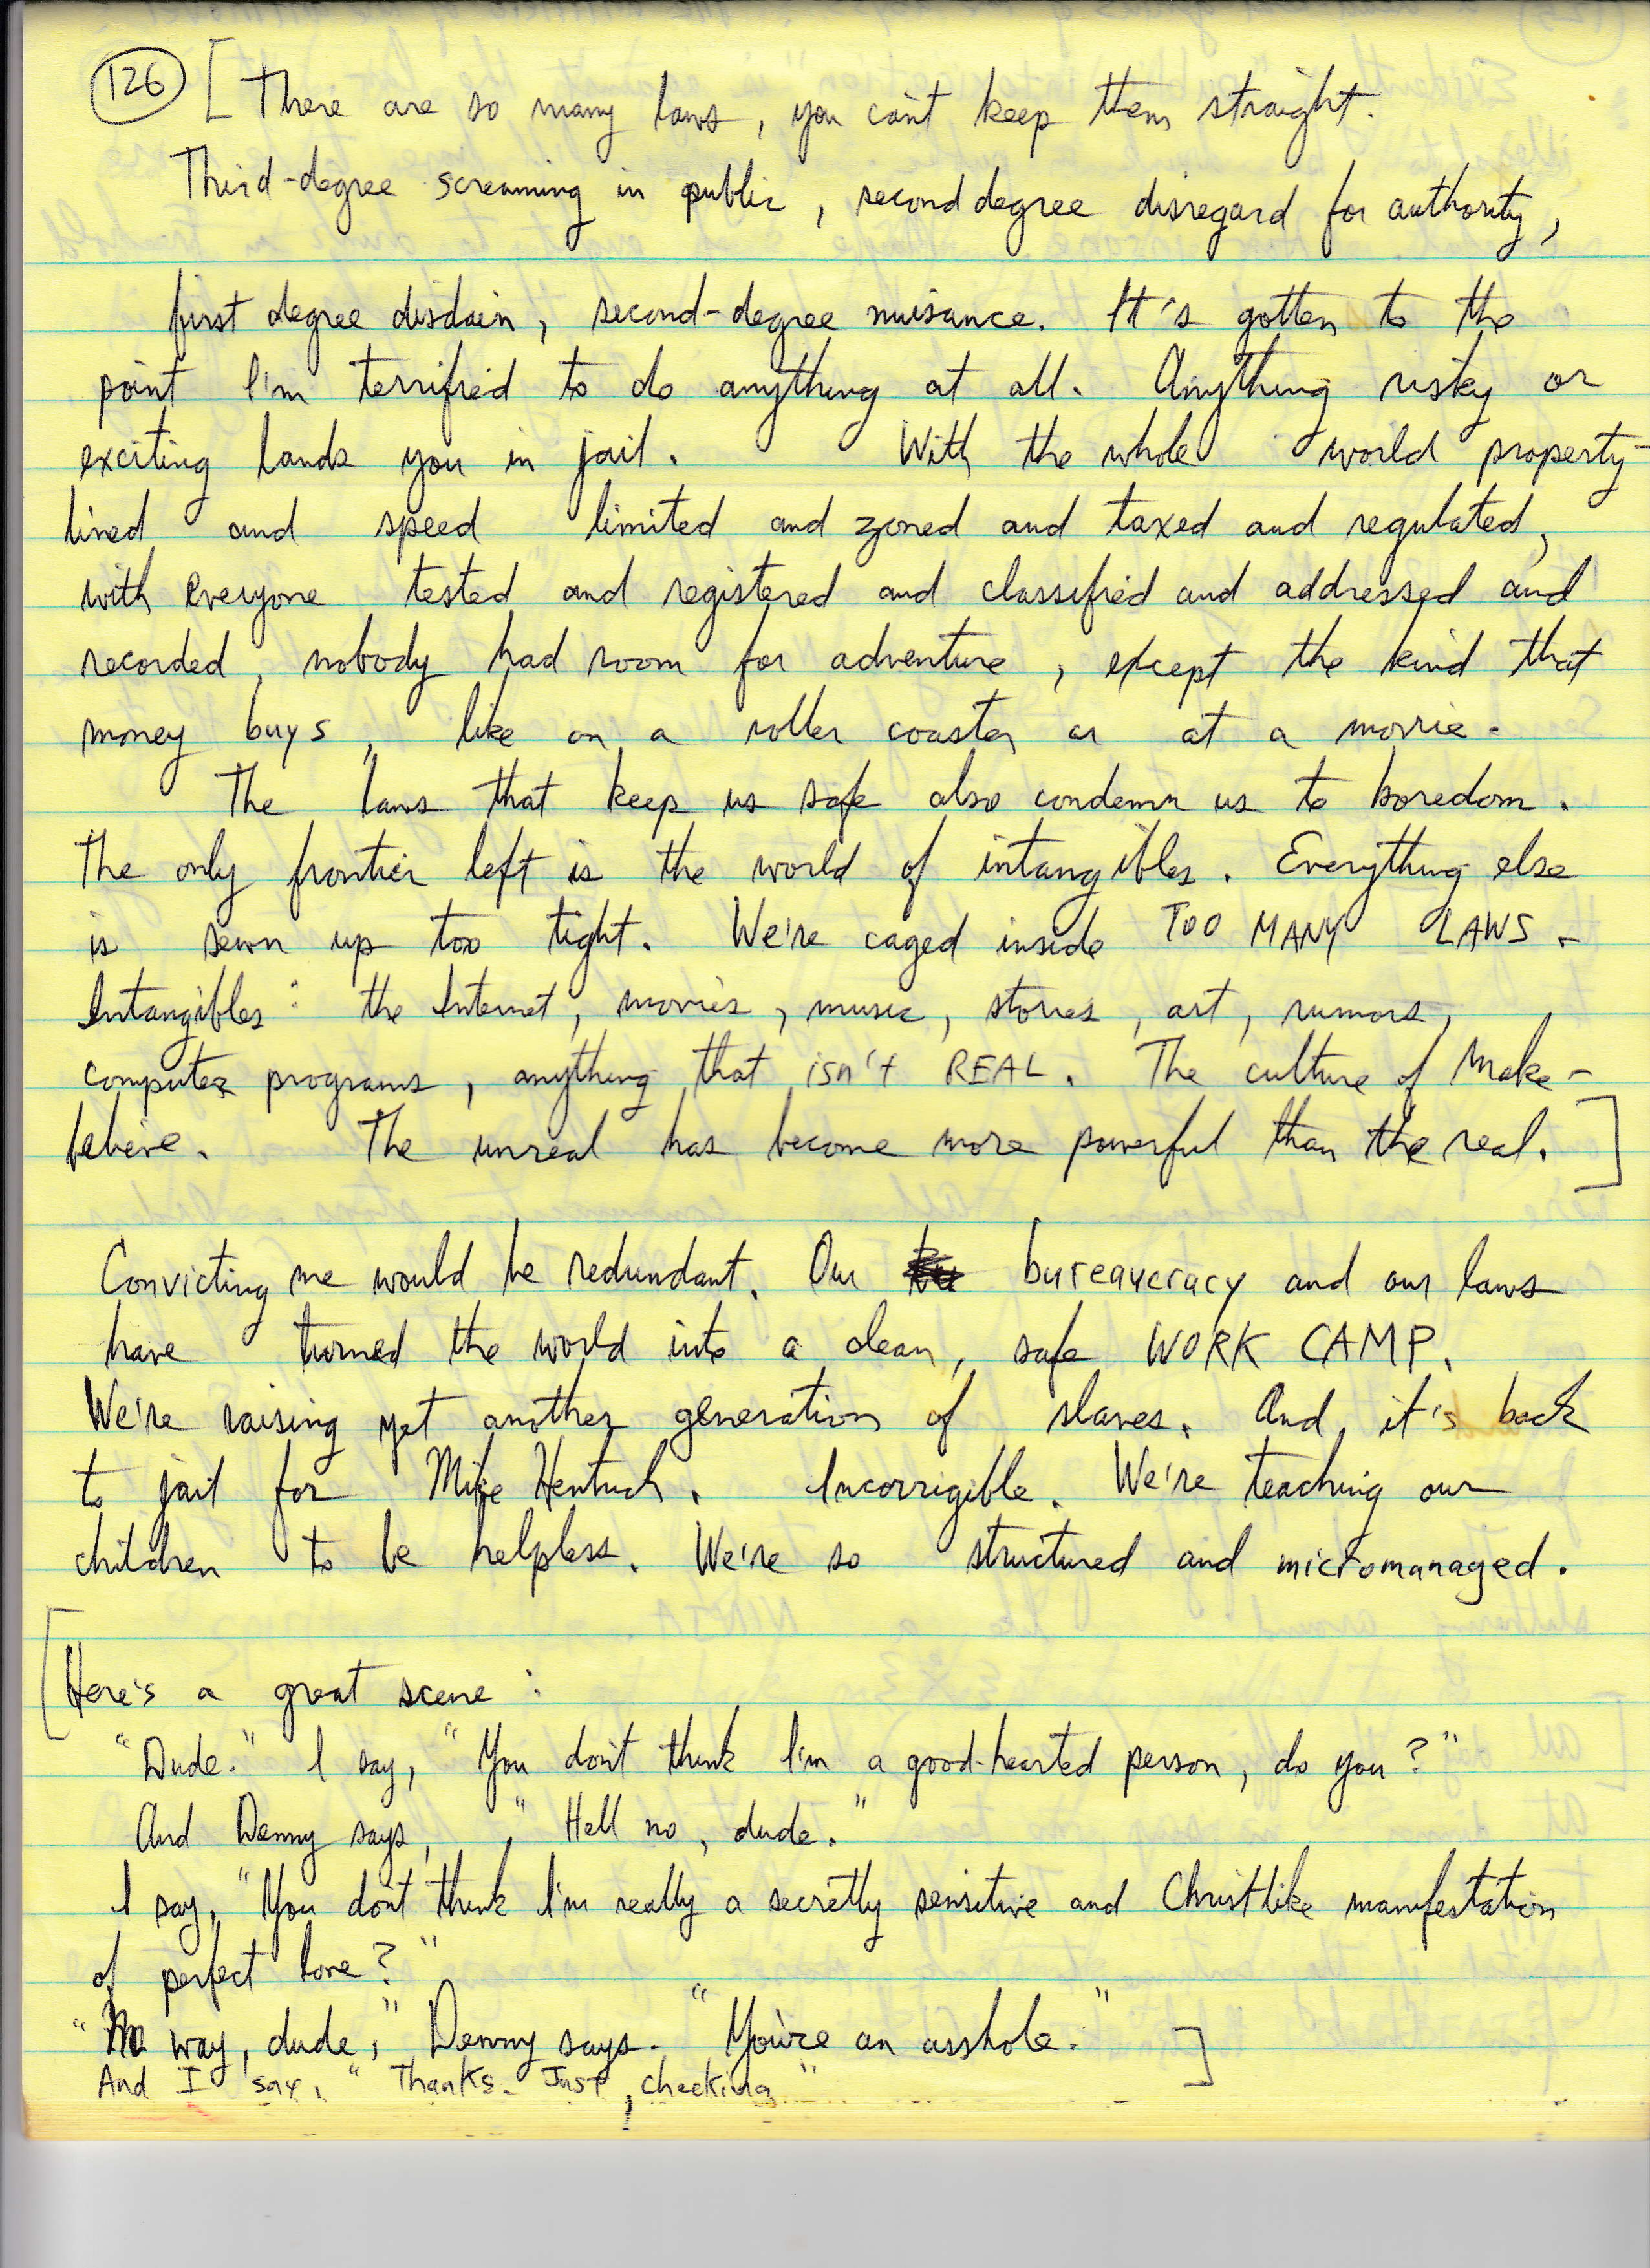 126 [There are so many laws, you can't keep them straight.
Third-degree screaming in public, second degree disregard for authority,
first degree disdain, second-degree nuisance. It's gotten to the
point I'm terrified to do anything at all. Anything risky or
exciting lands you in jail. With the whole world property-
lined and speed limited and zoned and taxed and regulated,
with everyone tested and registered and classified and addressed and
recorded, nobody had room for adventure, except the kind that
money buys, like on a roller coaster or at a movie.
The laws that keep us safe also condemn us to boredom.
The only frontier left is the world of intangibles. Everything else
is sewn up too tight. We're caged inside TOO MANY LAWS.
Intangibles: the Internet, movies, music, stories, art, rumors,
computer programs, anything that isn't REAL. The culture of Make-
believe. The unreal has become more powerful than the real.]
Convicting me would be redundant. Our bureaucracy and our laws
have turned the world into a clean, safe WORK CAMP.
We're raising yet another generation of slaves. And, it's back
to jail for Mike Hentuch. Incorrigible. We're teaching our
children to be helpless. We're so structured and micromanaged.
[Here's a great scene:
"Dude." I say, "You don't think I'm a good-hearted person, do you?"
And Denny says, "Hell no, dude."
I say, "You don't think I'm really a secretly sensitive and Christlike manifestation
of perfect love?"
"No way, dude," Denny says. "You're an asshole."]
And I say, "Thanks. Just checking"